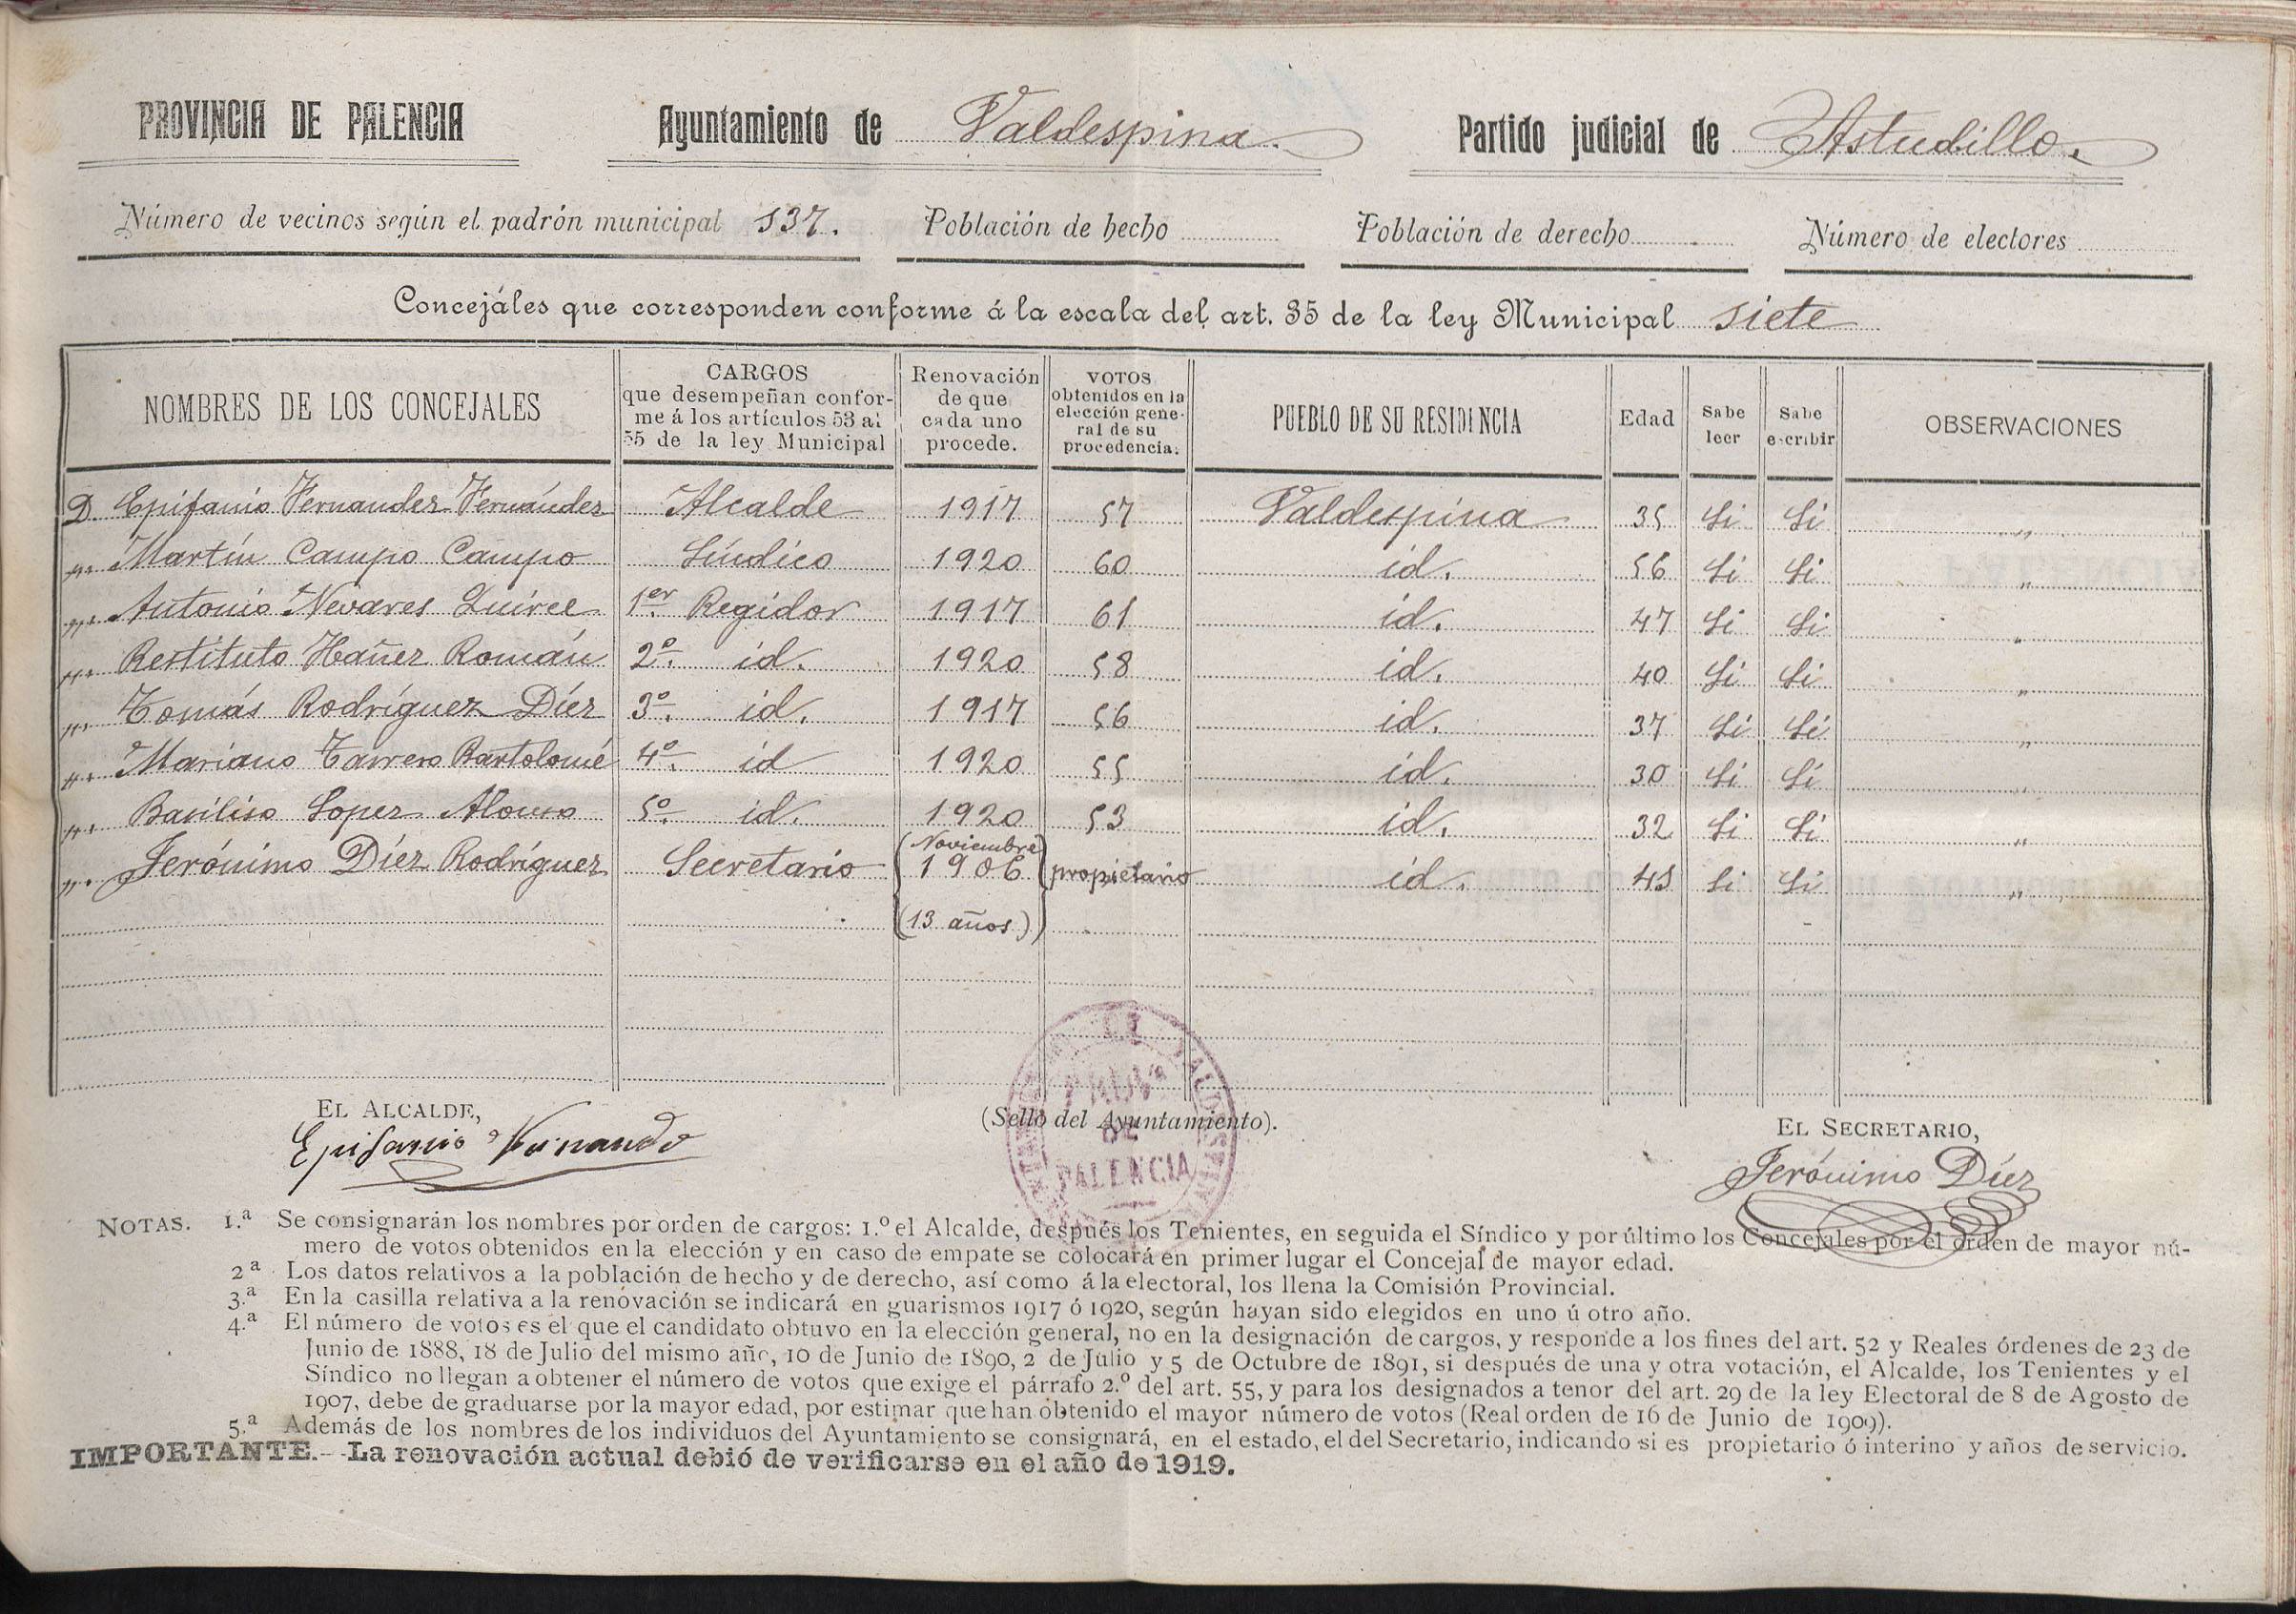 PROVINCIA DE PALENCIA Ayuntamiento de Valdespina. Partido judicial de Astudillo.
Número de vecinos según el padrón municipal 137. Población de hecho Población de derecho Número de electores
Concejáles que corresponden conforme á la escala del art. 35 de la ley Municipal siete
NOMBRES DE LOS CONCEJALES
CARGOS
que desempeñan confor-
me á los artículos 53 al
55 de la ley Municipal
Renovación
de que
cada uno
procede.
VOTOS
obtenidos en la
elección gene-
ral de su
procedencia.
PUEBLO DE SU RESIDENCIA
Edad
Sabe
leer
Sabe
escribir
OBSERVACIONES
D. Epifanio Fernandez Fernández Alcalde 1917 57 Valdespina 35 Si Si „
„. Martín Campo Campo Síndico 1920 60 id. 56 Si Si „
„. Antonio Nevares Quirce 1er Regidor 1917 61 id. 47 Si Si „
„. Restituto Ibañez Román 2º. id. 1920 58 id. 40 Si Si „
„. Tomás Rodríguez Díez 3º. id. 1917 56 id. 37 Si Si „
„. Mariano Tarrero Bartolomé 4º. id 1920 55 id. 30 Si Si „
„. Basiliso Lopez Alonso 5º. id. 1920 53 id. 32 Si Si „
„. Jerónimo Díez Rodríguez Secretario (Noviembre 1906 propietario id. Si Si „
(13 años)
EL ALCALDE,
Epifanio Fernando
(Sello del Ayuntamiento).
PROVª
DE
PALENCIA
EL SECRETARIO,
Jerónimo Díez
NOTAS. 1.ª Se consignarán los nombres por orden de cargos: 1.º el Alcalde, después los Tenientes, en seguida el Síndico y por último los Concejales por el orden de mayor nú-
mero de votos obtenidos en la elección y en caso de empate se colocará en primer lugar el Concejal de mayor edad.
2ª Los datos relativos a la población de hecho y de derecho, así como á la electoral, los llena la Comisión Provincial.
3.ª En la casilla relativa a la renovación se indicará en guarismos 1917 ó 1920, según hayan sido elegidos en uno ú otro año.
4.ª El número de votos es el que el candidato obtuvo en la elección general, no en la designación de cargos, y responde a los fines del art. 52 y Reales órdenes de 23 de
Junio de 1888, 18 de Julio del mismo año, 10 de Junio de 1890, 2 de Julio y 5 de Octubre de 1891, si después de una y otra votación, el Alcalde, los Tenientes y el
Síndico no llegan a obtener el número de votos que exige el párrafo 2.º del art. 55, y para los designados a tenor del art. 29 de la ley Electoral de 8 de Agosto de
1907, debe de graduarse por la mayor edad, por estimar que han obtenido el mayor número de votos (Real orden de 16 de Junio de 1909).
5.ª Además de los nombres de los individuos del Ayuntamiento se consignará, en el estado, el del Secretario, indicando si es propietario ó interino y años de servicio.
IMPORTANTE.—La renovación actual debió de verificarse en el año de 1919.